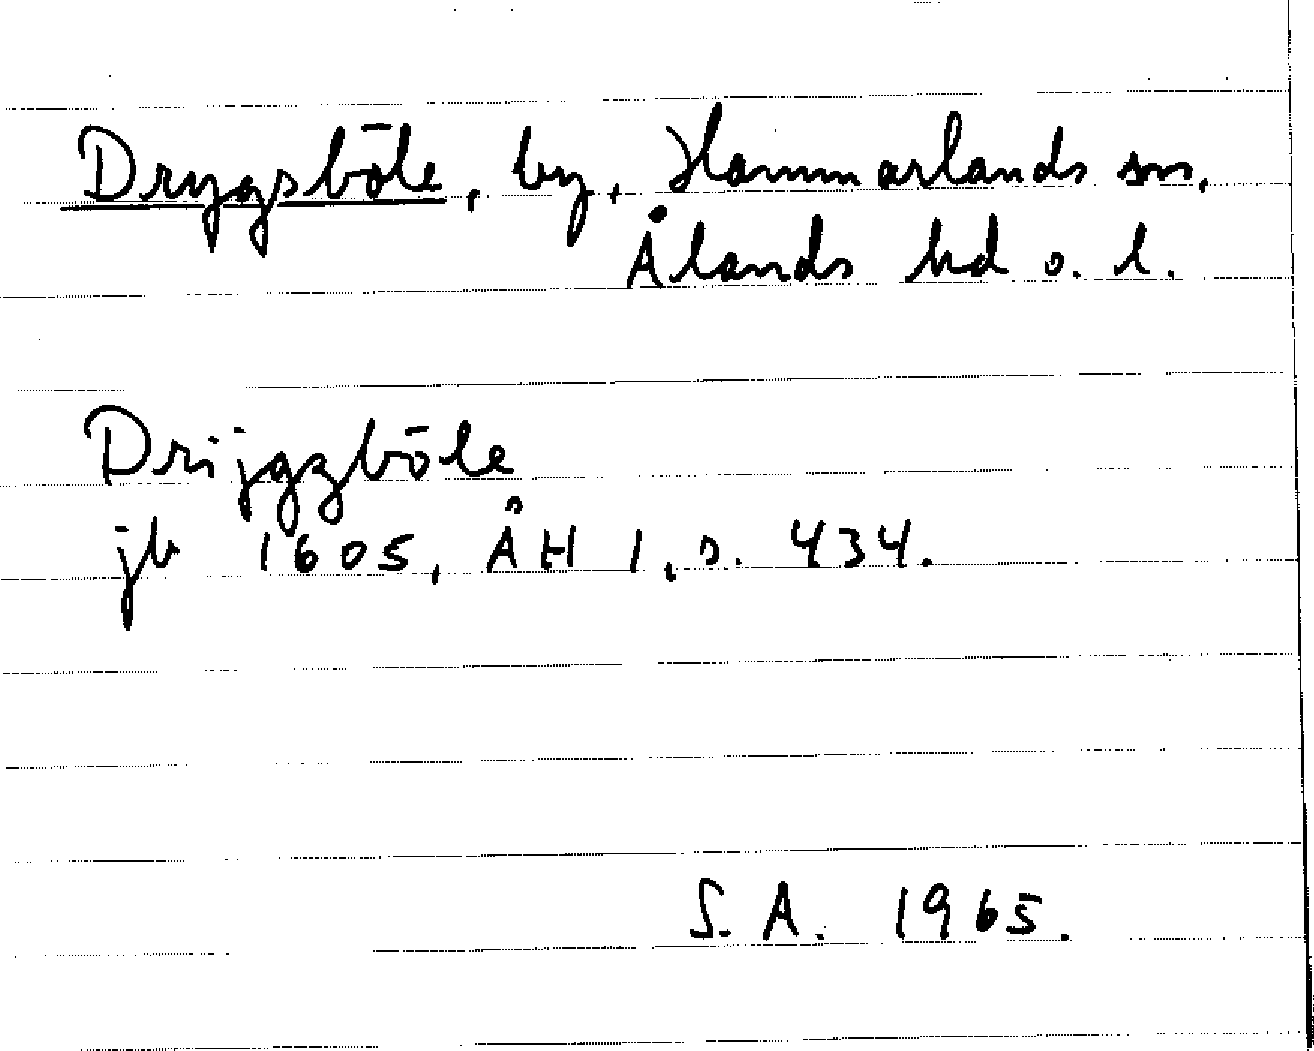 Drygsböle, by, Hammarlands sn,
Ålands hd o. l.
Drijgzböle
jb 1605, ÅH 1, s. 434.
S. A. 1965.